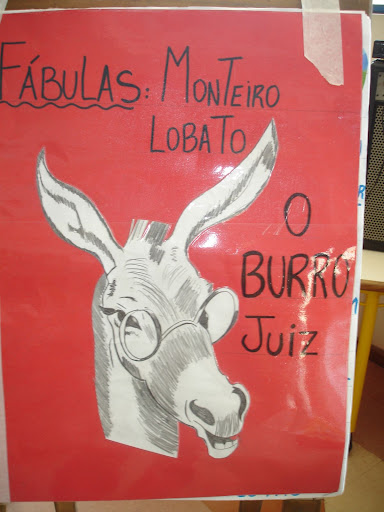 FÁBULAS: MONTEIRO
LOBATO
O
BURRO
JUIZ